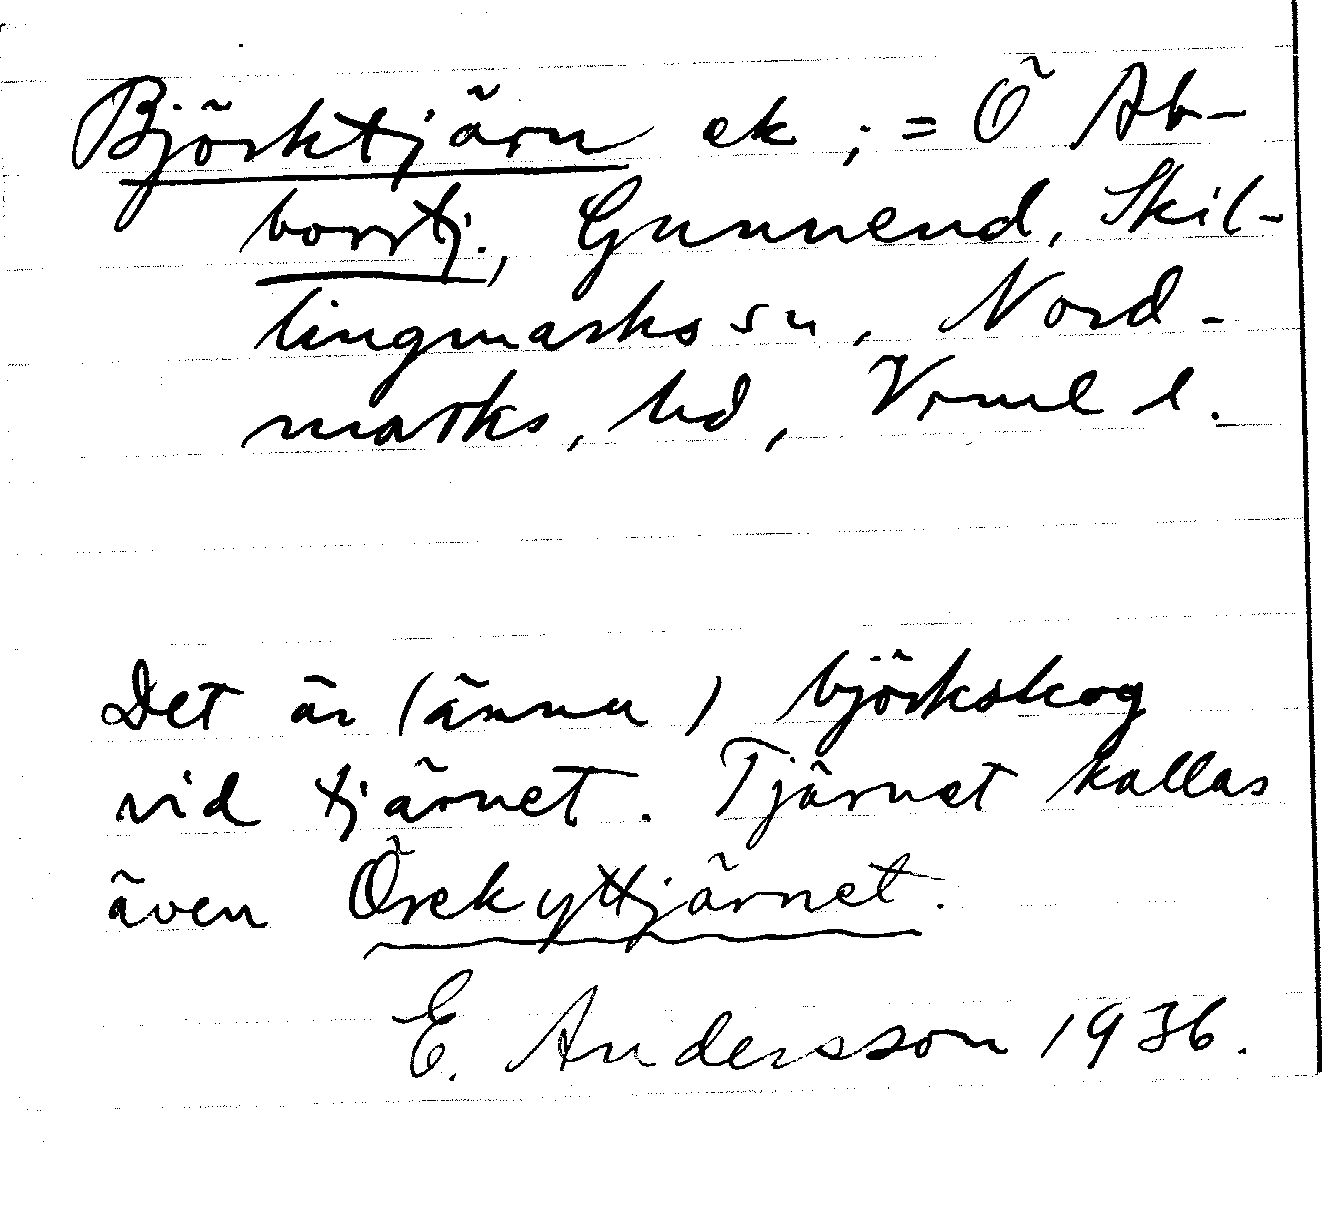 Björktjärn ek ; = Ö Ab-
borrtj., Gunnend, Skil-
lingmarks sn, Nord-
marks, hd, Vrml l.
Det är (ännu) björkskog
vid tjärnet. Tjärnet kallas
även Örekyttjärnet.
E. Andersson 1936.